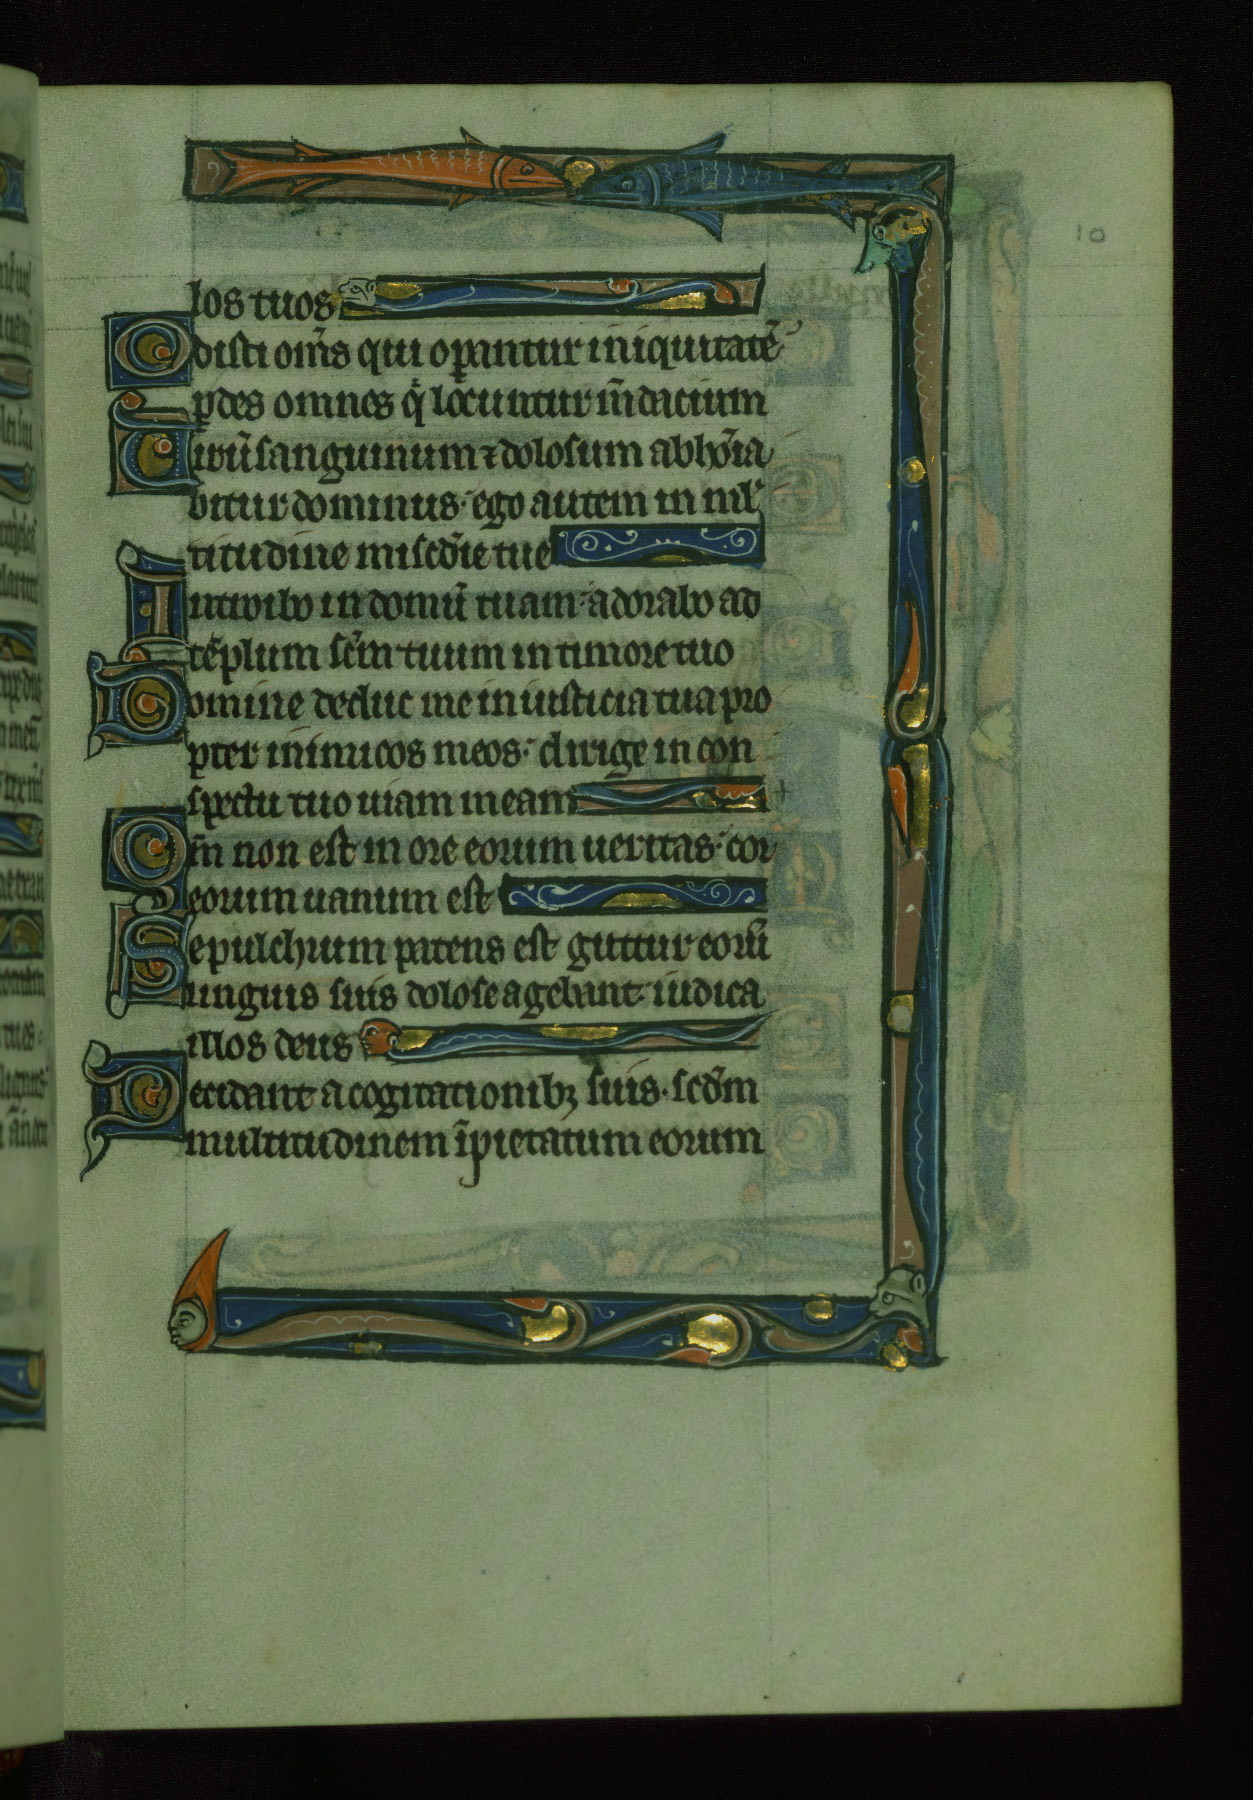 10
los tuos
Odisti om̄s qui op̄antur iniquitatē
ꝑdes omnes q̇ locuntur m̄dacium
Uirū sanguinum ⁊ dolosum abho͂ia
bitur dominus· ego autem in ml̄
titudine misc̄die tue
Introibo in domū tuam· adorabo ad
tēplum sc̄m tuum in timore tuo
Domine deduc me in iusticia tua pro
pter inimicos meos· dirige in con
spectu tuo uiam meam
Qm̄ non est in ore eorum ueritas· cor
eorum uanum est
Sepulchrum patens est guttur eorū
linguis suis dolose agebant· iudica
illos deus
Decidant a cogitationibꝫ suis· scd̄m
multitudinem īpietatum eorum